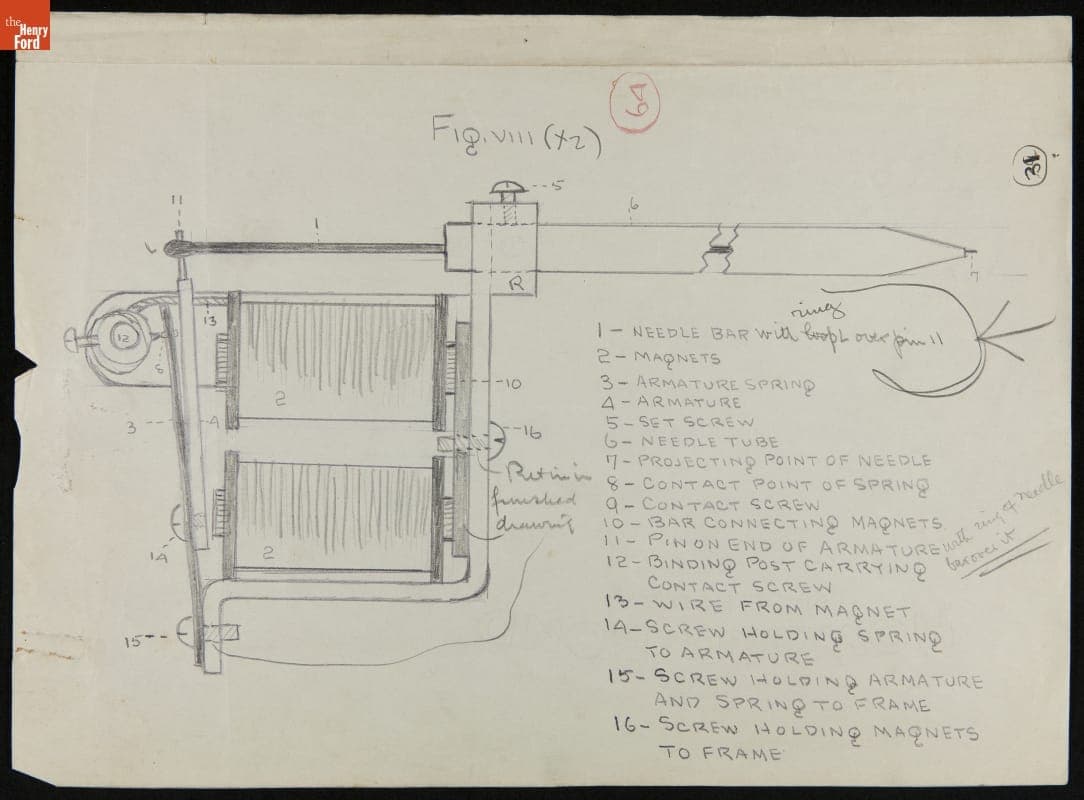 the
Henry
Ford
Fig. VIII (X2)
31
11
5
1
6
R
7
12
13
S
2
10
3
4
16
Put in in
finished
drawing
14
2
15
ring
1 - NEEDLE BAR with loop over pin 11
2 - MAGNETS
3 - ARMATURE SPRING
4 - ARMATURE
5 - SET SCREW
6 - NEEDLE TUBE
7 - PROJECTING POINT OF NEEDLE
8 - CONTACT POINT OF SPRING
9 - CONTACT SCREW
10 - BAR CONNECTING MAGNETS
11 - PIN ON END OF ARMATURE with ring of needle
bar over it
12 - BINDING POST CARRYING
CONTACT SCREW
13 - WIRE FROM MAGNET
14 - SCREW HOLDING SPRING
TO ARMATURE
15 - SCREW HOLDING ARMATURE
AND SPRING TO FRAME
16 - SCREW HOLDING MAGNETS
TO FRAME